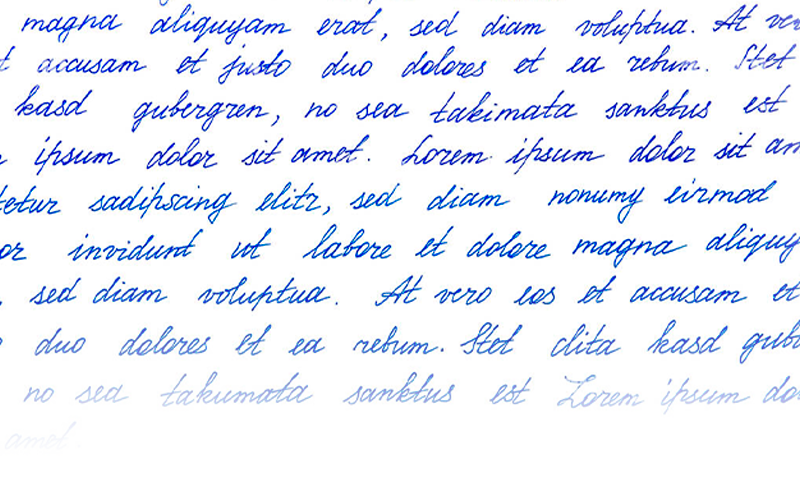 magna aliquyam erat, sed diam voluptua. At
accusam et justo duo dolores et ea rebum. Stet
kasd gubergren, no sea takimata sanktus est
ipsum dolor sit amet. Lorem ipsum dolor sit am
tetur sadipscing elitr, sed diam nonumy eirmod
or invidunt ut labore et dolore magna aliquy
, sed diam voluptua. At vero eos et accusam et
duo dolores et ea rebum. Stet clita kasd gub
no sea takumata sanktus est Lorem ipsum do
amet.